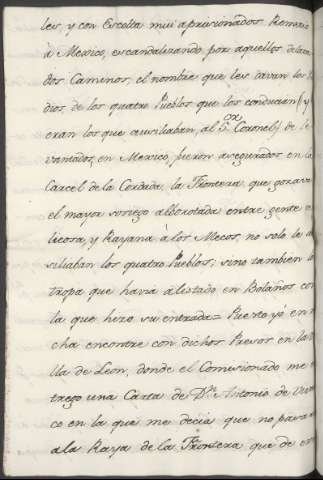 les, y con Escolta mui aprisionados Remetio
à Mexico, escandalizando por aquellos
dos Caminos, el nombre que les davan los
dios, de los quatro Pueblos que los conducian (y
eran los que auxiliaban, al S.or Coronel) de le
vantados, en Mexico, fueron asegurados en la
Carcel de la Cordada, la Frontera, que gozava
el mayor sosiego alborotada entre gente
licosa, y Rayana à los Mecos, no solo le
siliaban los quatro Pueblos; sino tambien la
tropa que havia alistado en Bolaños con
la que hezo su entrada = Puerto yó en
cha encontre con dichos Presos en la Vi
lla de Leon, donde el Comisionado me
trego una Carta de D.n Antonio de
co en la que me decia que no
a la Raya de la Frontera que de